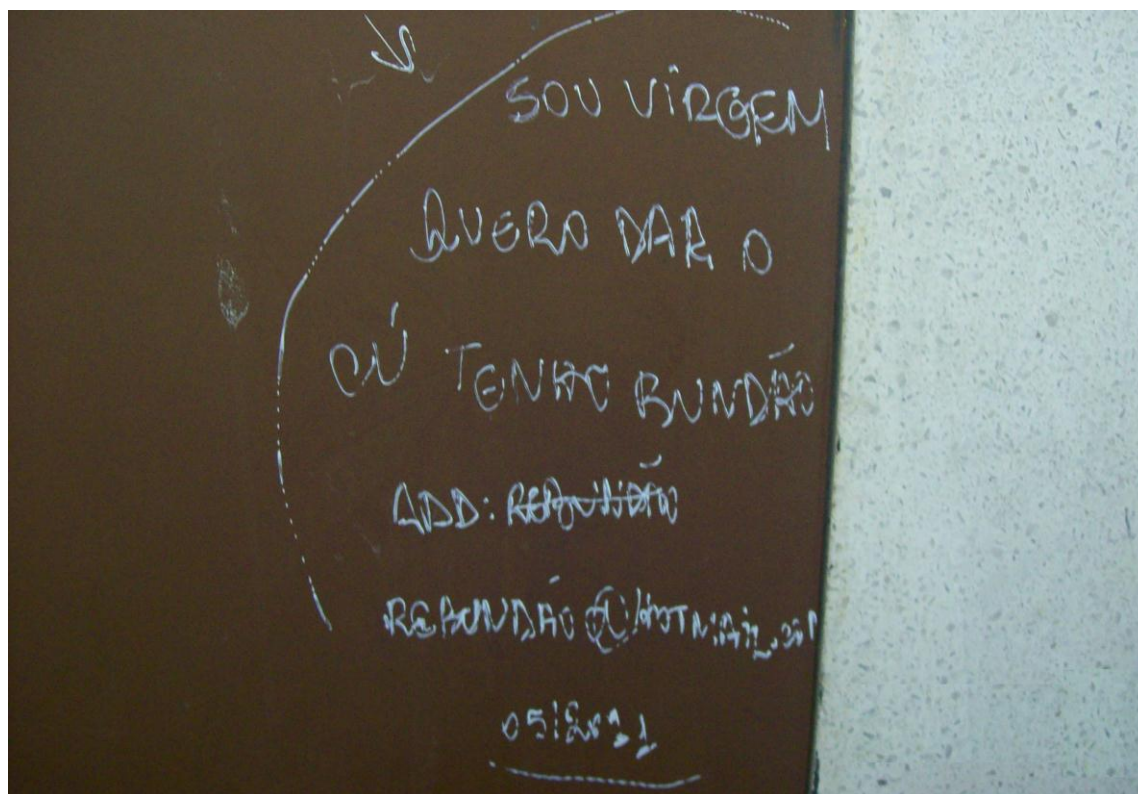 SOU VIRGEM
QUERO DAR O
CÚ TENHO BUNDÃO
ADD:
REBUNDÃO@HOTMAIL.COM
05/2011